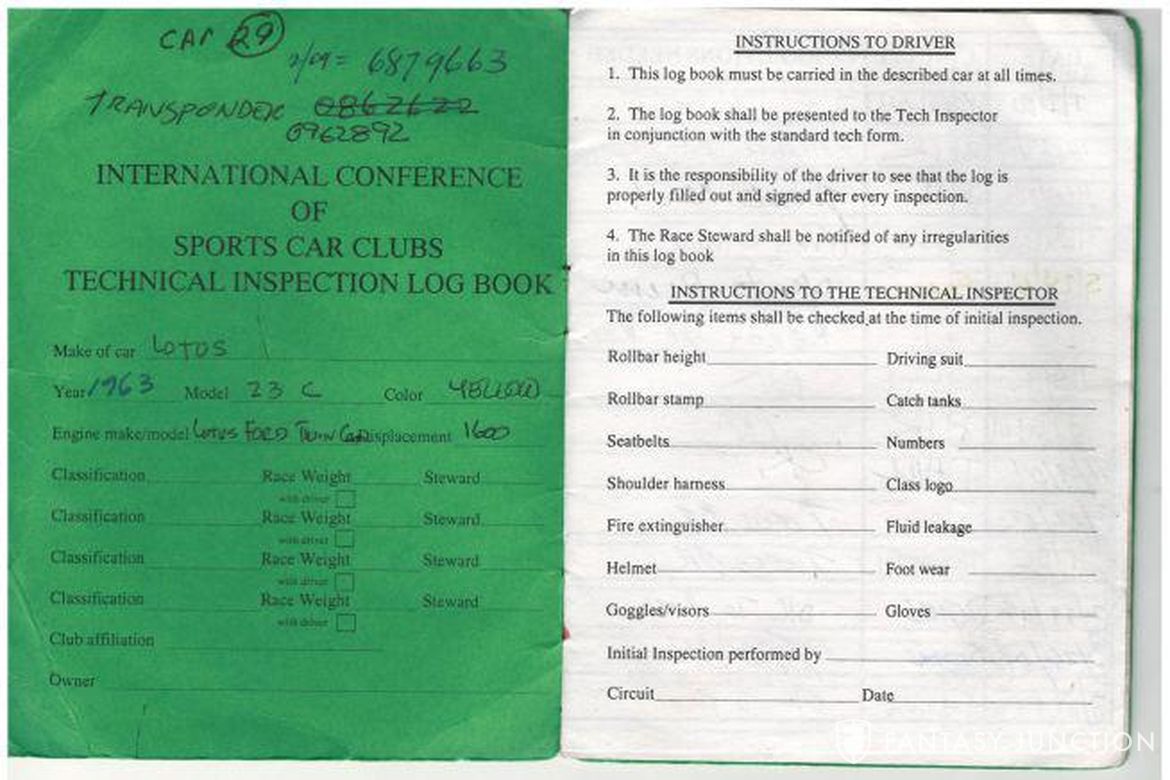 CAR 29
2/09 = 6879663
TRANSPONDER 0862622
0962892
INTERNATIONAL CONFERENCE
OF
SPORTS CAR CLUBS
TECHNICAL INSPECTION LOG BOOK
Make of car LOTUS
Year 1963 Model 23 C Color YELLOW
Engine make/model LOTUS FORD TWIN CAM Displacement 1600
Classification Race Weight Steward
with driver
Classification Race Weight Steward
with driver
Classification Race Weight Steward
with driver
Classification Race Weight Steward
with driver
Club affiliation
Owner
INSTRUCTIONS TO DRIVER
1. This log book must be carried in the described car at all times.
2. The log book shall be presented to the Tech Inspector
in conjunction with the standard tech form.
3. It is the responsibility of the driver to see that the log is
properly filled out and signed after every inspection.
4. The Race Steward shall be notified of any irregularities
in this log book
INSTRUCTIONS TO THE TECHNICAL INSPECTOR
The following items shall be checked at the time of initial inspection.
Rollbar height Driving suit
Rollbar stamp Catch tanks
Seatbelts Numbers
Shoulder harness Class logo
Fire extinguisher Fluid leakage
Helmet Foot wear
Goggles/visors Gloves
Initial Inspection performed by
Circuit Date
FANTASY JUNCTION